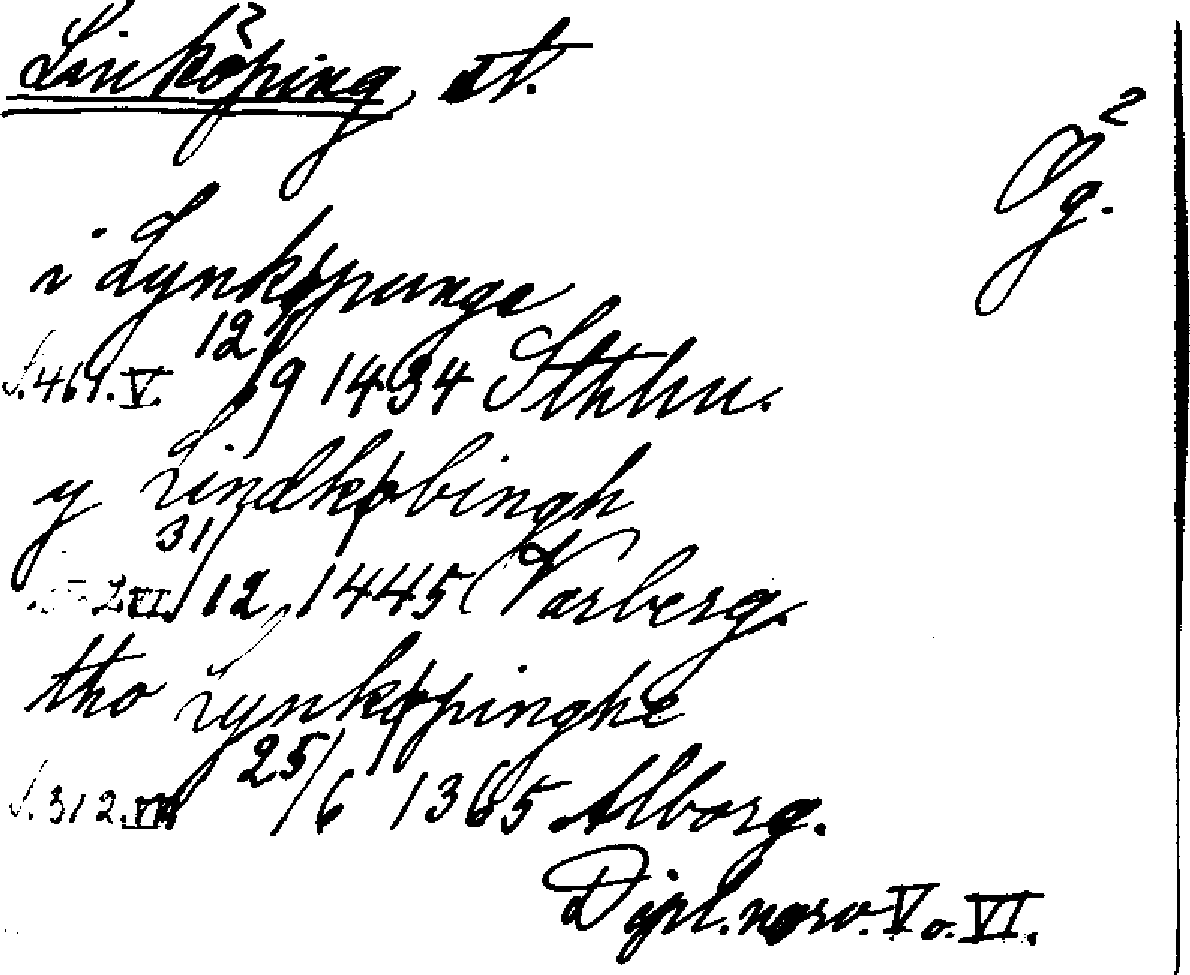 Linköping st.
Ög.
i Lynkøpunge
S. 461. V. 12/9 1434 Sthlm.
y Lindkøbingh
S. 2. VI. 31/12 1445 Varberg.
tho Lynkøpinghe
S. 312. VI 25/6 1365 Alborg.
Dipl. norv. V o. VI.